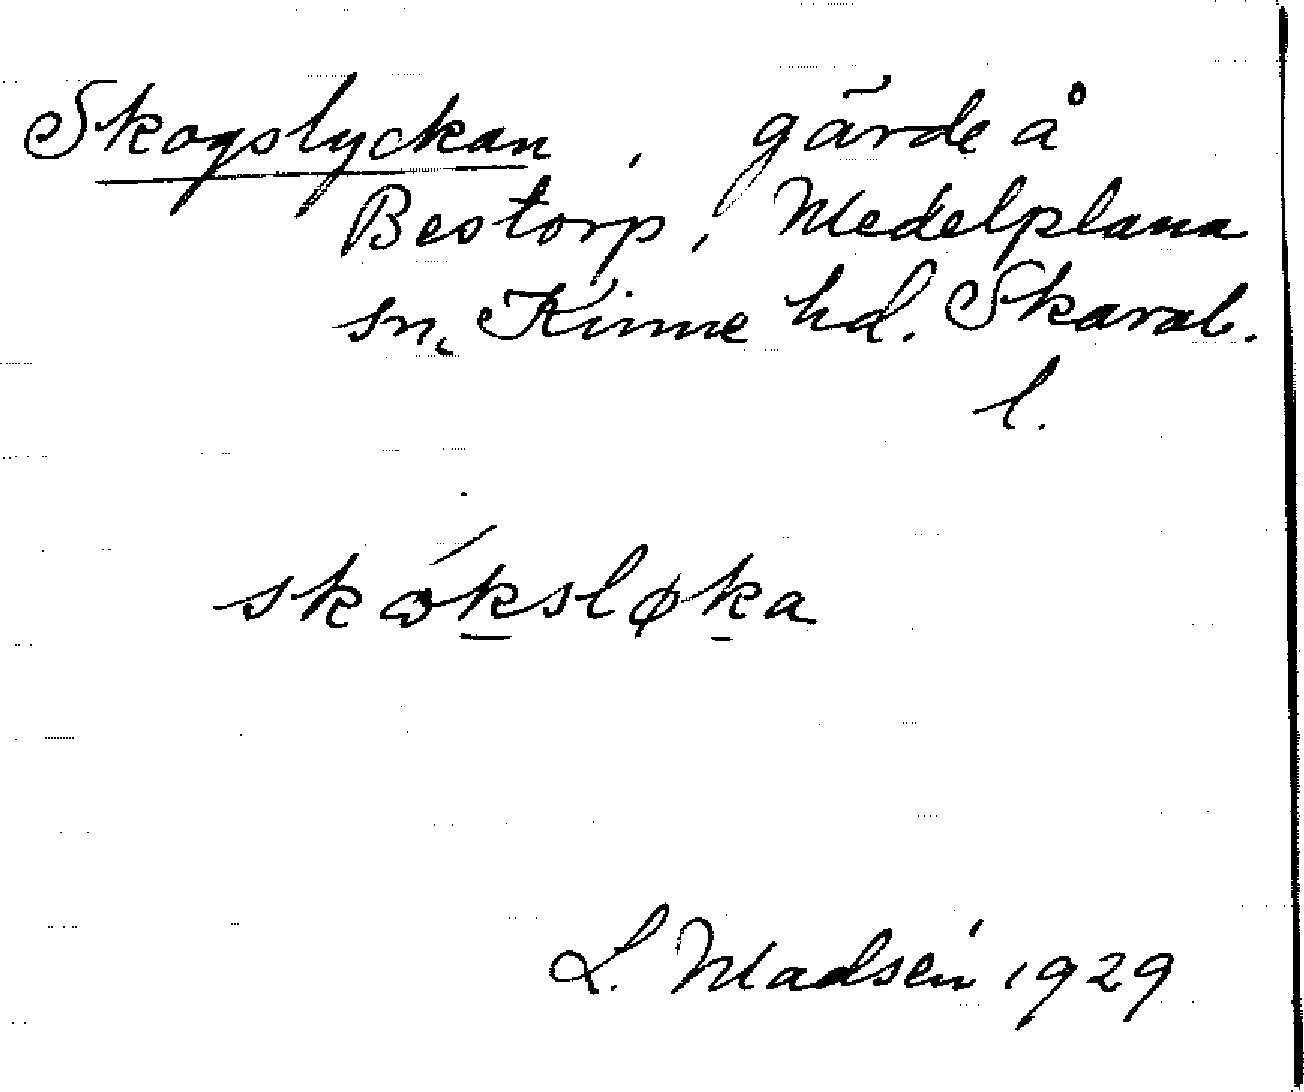 Skogslyckan, gärde å
Bestorp, Medelplana
sn, Kinne hd. Skarab.
l.
skɷ́ksløka
L. Madsén 1929